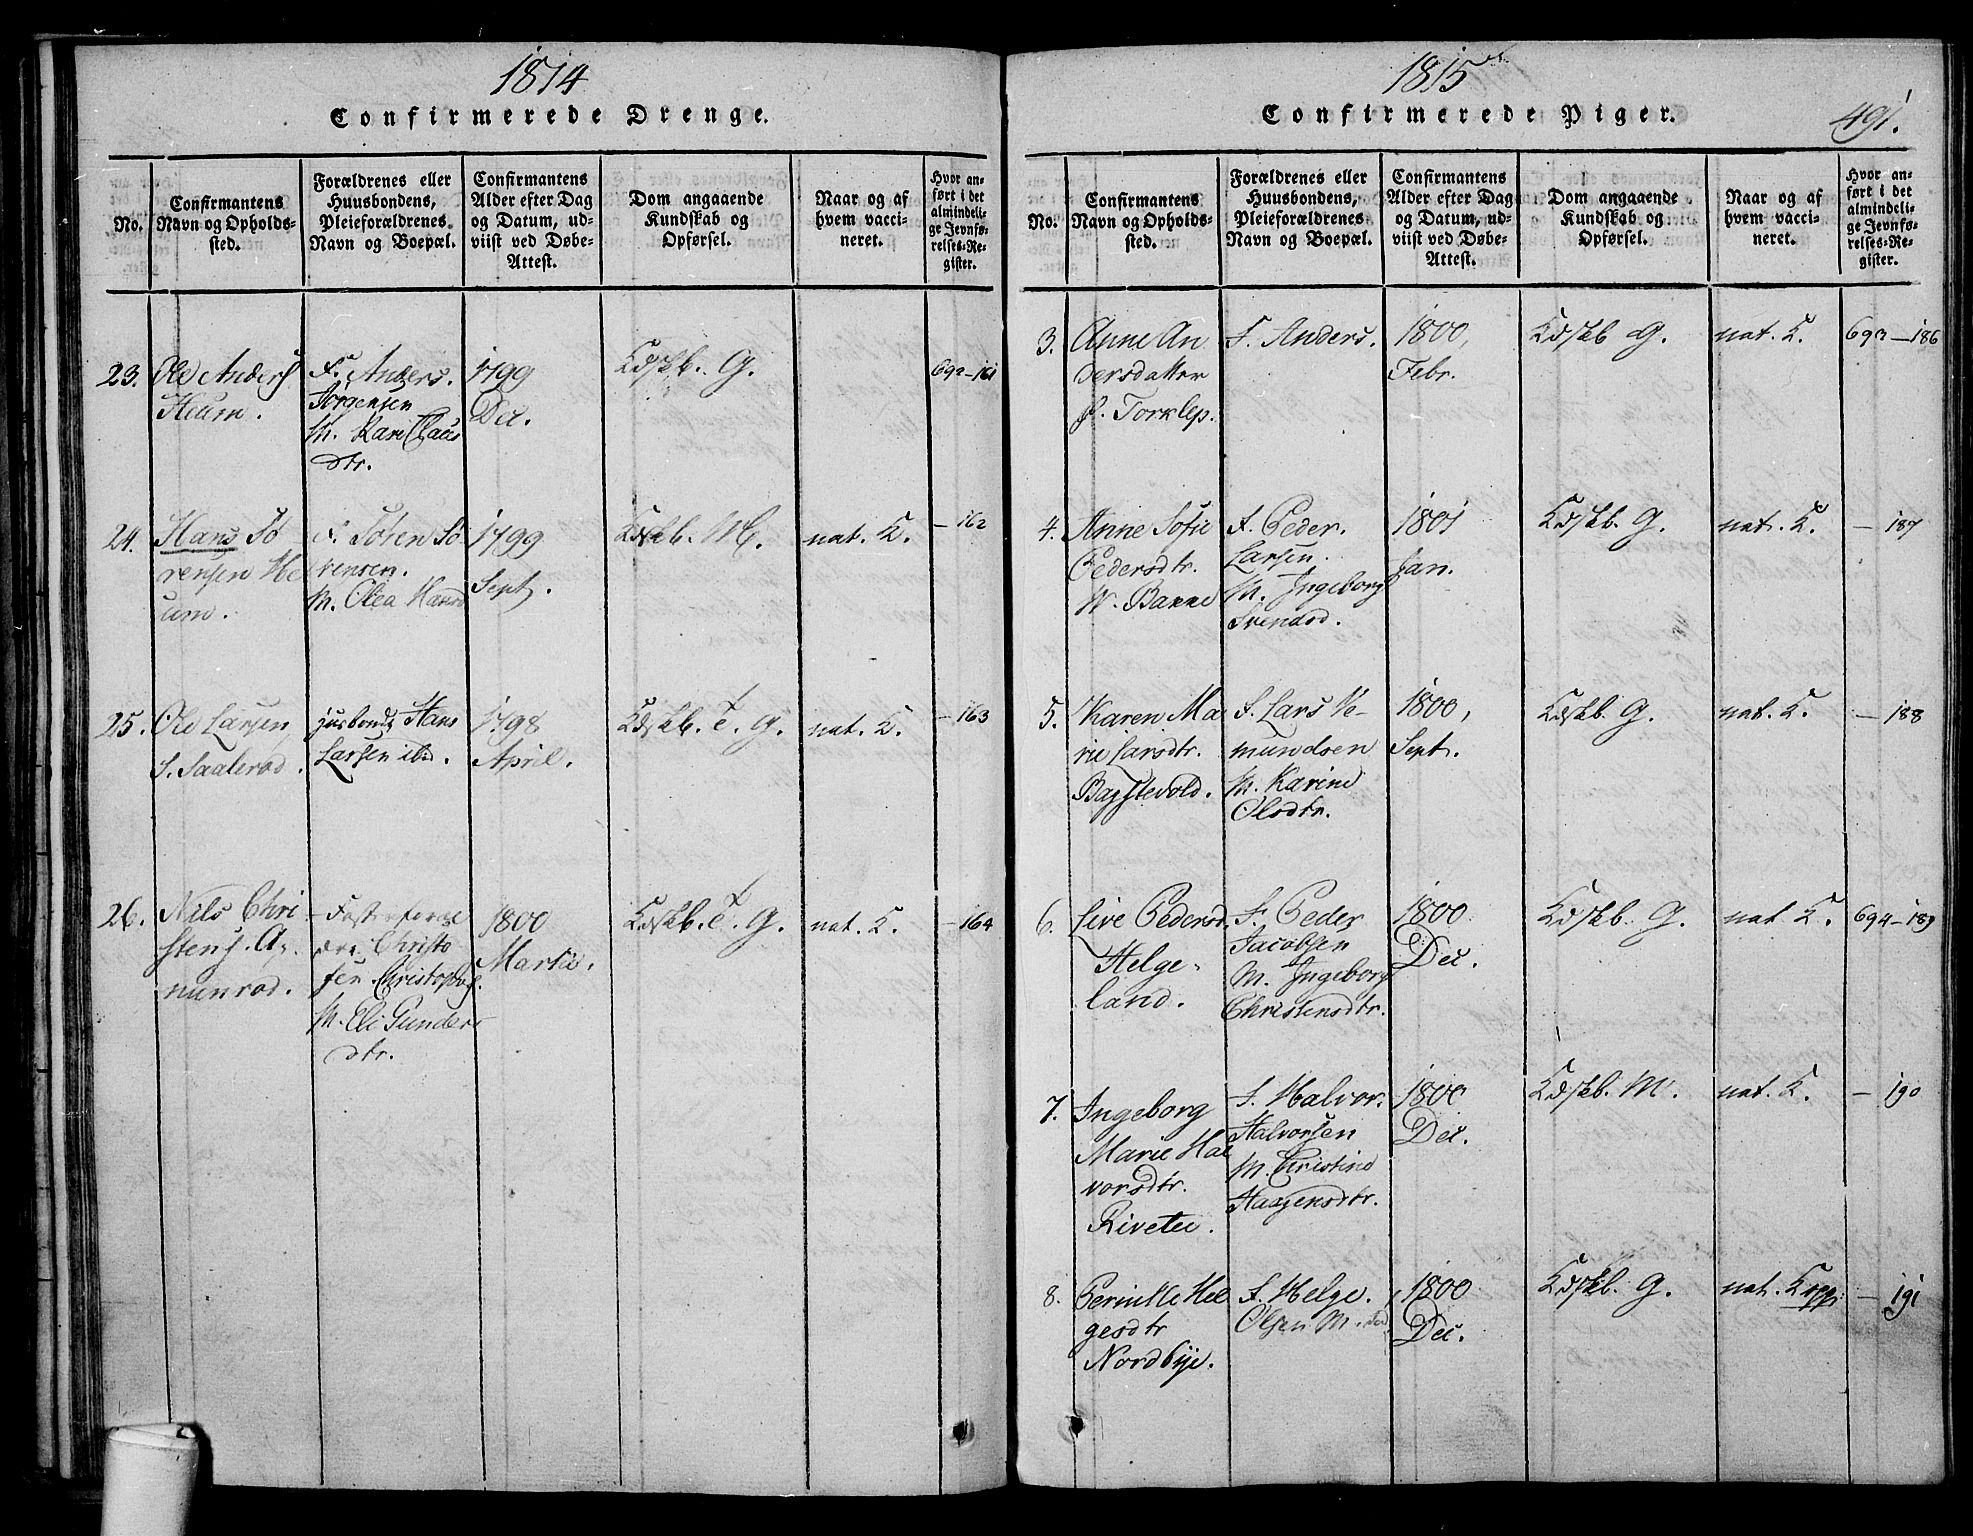 1814
Confirmerede Drenge.
No.
Confirmantens
Navn og Opholds-
sted.
Forældrenes eller
Huusbondens,
Pleieforældrenes
Navn og Boepæl.
Confirmantens
Alder efter Dag
og Datum, ud-
viist ved Døbe-
Attest.
Dom angaaende
Kundskab og
Opførsel.
Naar og af
hvem vacci-
neret.
Hvor an-
ført i det
almindeli-
ge Jevnfø-
relses-Re-
gister.
23.
Ole Anders
Heum.
F. Anders.
Jørgensen
M. Kari Claus
dtr.
1799
Dec.
Kdskb. G.
692-161
24.
Hans Sö
rensen He
um.
F. Sören Sö
rensen.
M. Olea Hansd
1799
Sept.
Kdskb. M.
nat. K.
- 162
25.
Ole Larsen
S. Saalerød.
husbond Hans
Larsen ibd.
1798
April.
Kdskb. T. G.
nat. K.
- 163
26.
Nils Chri
stens.
nunrød.
Fosterforæl
dre Christo
fen Christophs.
M. Eli Gunders
dtr.
1800
Martii.
Kdskb. T. G.
nat. K.
- 164
1815
Confirmerede Piger.
491.
No.
Confirmantens
Navn og Opholds-
sted.
Forældrenes eller
Huusbondens,
Pleieforældrenes
Navn og Boepæl.
Confirmantens
Alder efter Dag
og Datum, ud-
viist ved Døbe-
Attest.
Dom angaaende
Kundskab og
Opførsel.
Naar og af
hvem vacci-
neret.
Hvor an-
ført i det
almindeli-
ge Jevnfø-
relses-Re-
gister.
3.
Anne An
dersdatter
Torklep.
F. Anders.
1800,
Febr.
Kdskb G.
nat. K.
693-186
4.
Anne Sofie
Pedersdtr.
N. Bakke
F. Peder.
Larsen.
M. Ingeborg
Svendsd.
1801
Jan.
Kdskb. G.
nat. K.
- 187
5.
Karen Ma
rie Larsdtr.
Bagstevold.
F. Lars Ve-
mundsen
M. Karine
Olsdtr.
1800,
Sept.
Kdskb. G.
nat. K.
- 188
6.
Live Pedersd.
Helge-
land.
F. Peder
Jacobsen
M. Ingeborg
Christensdtr.
1800
Dec.
Kdskb. G.
nat K.
694-189
7.
Ingeborg
Marie Hal
vorsdtr.
Rivetei.
F. Halvor.
Halvorsen
M. Christine
Haagensdtr.
1800
Dec.
Kdskb. M.
nat. K.
- 190
8.
Pernille Hel
gesdtr
Nordbye.
F. Helge.
Olsen M. død
1800
Dec.
Kdskb. G.
nat. Kopp.
- 191